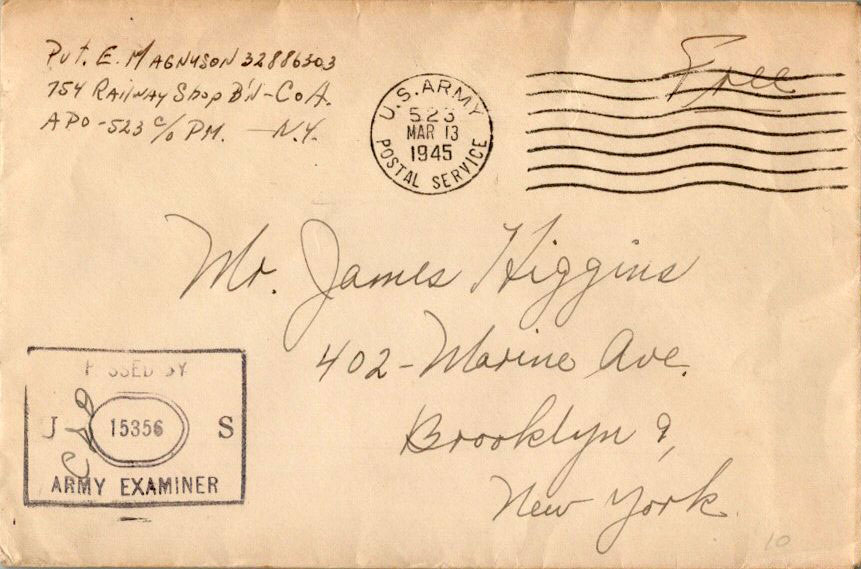 Pvt. E. Magnuson 32886303
754 Railway Shop B'n - Co A.
APO - 523 c/o PM. - N.Y.
U.S. ARMY
523
MAR 13
1945
POSTAL SERVICE
Free
Mr. James Higgins
402 - Marine Ave.
Brooklyn 9,
New York
PASSED BY
J 15356 S
ARMY EXAMINER
10